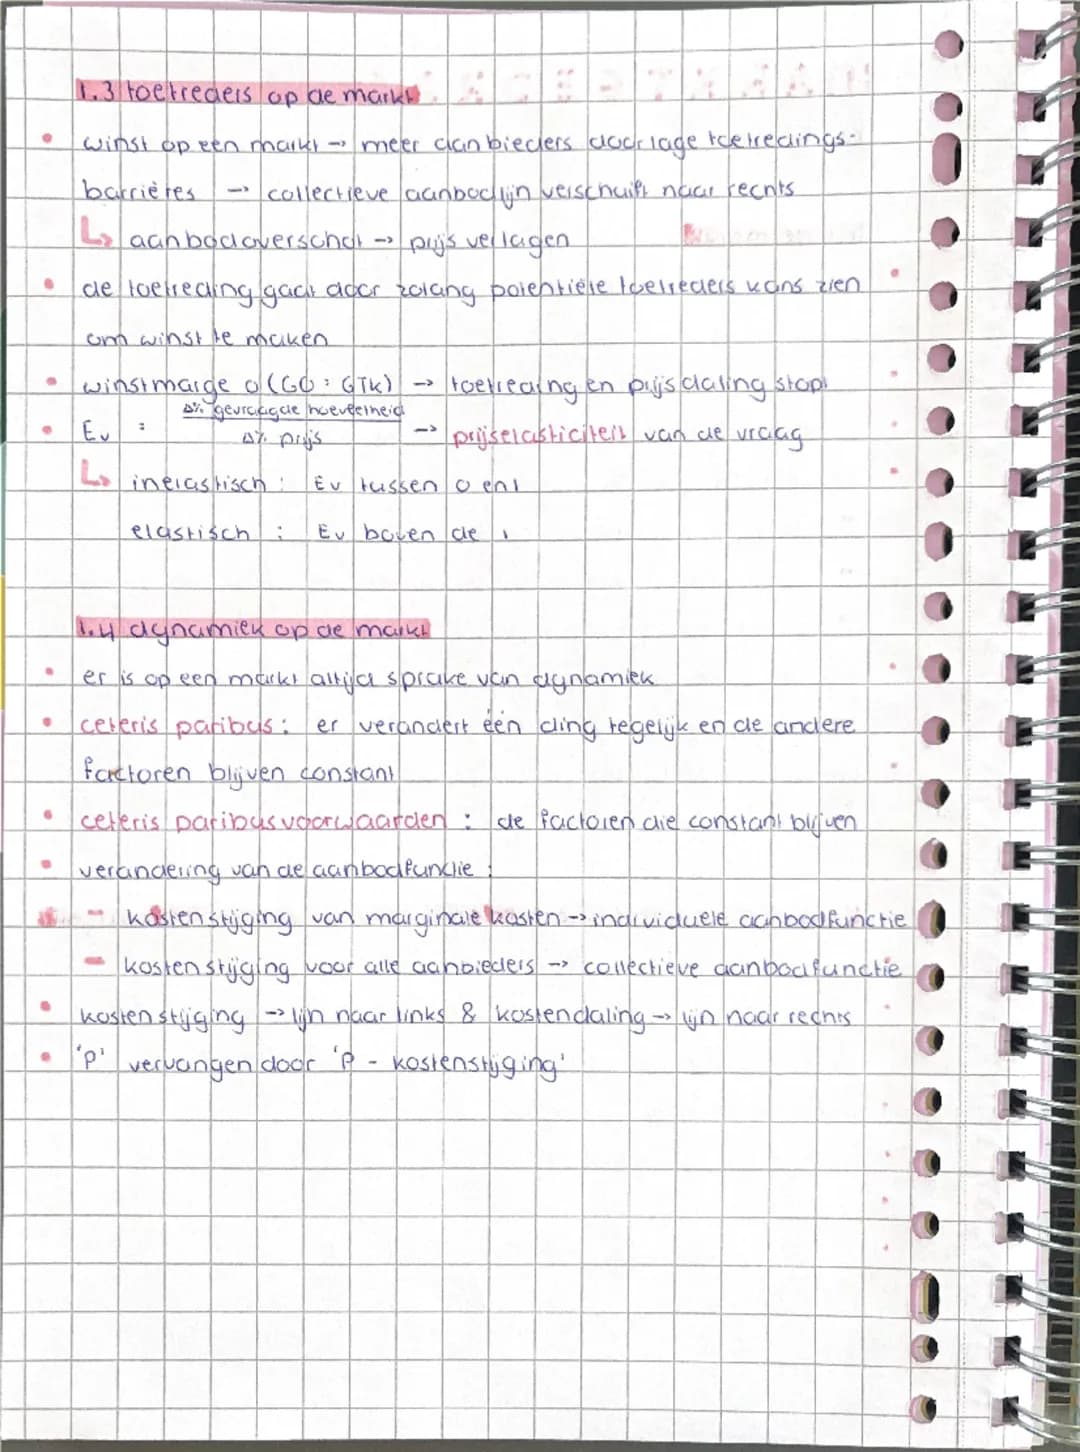 1.3 toetreders op de markt
• winst op een markt → meer aanbieders door lage toetredings-
barrières → collectieve aanbodlijn verschuift naar rechts
↳ aanbodoverschot → prijs verlagen
• de toetreding gaat door zolang potentiële toetreders kans zien
om winst te maken
• winstmarge 0 (GO = GTK) → toetreding en prijsdaling stopt
• Ev = Δ% gevraagde hoeveelheid / Δ% prijs → prijselasticiteit van de vraag
↳ inelastisch : Ev tussen 0 en 1
elastisch : Ev boven de 1
1.4 dynamiek op de markt
• er is op een markt altijd sprake van dynamiek
• ceteris paribus : er verandert één ding tegelijk en de andere
factoren blijven constant
• ceteris paribusvoorwaarden : de factoren die constant blijven
• verandering van de aanbodfunctie :
- kostenstijging van marginale kosten → individuele aanbodfunctie
- kostenstijging voor alle aanbieders → collectieve aanbodfunctie
• kostenstijging → lijn naar links & kostendaling → lijn naar rechts
• 'P' vervangen door 'P - kostenstijging'